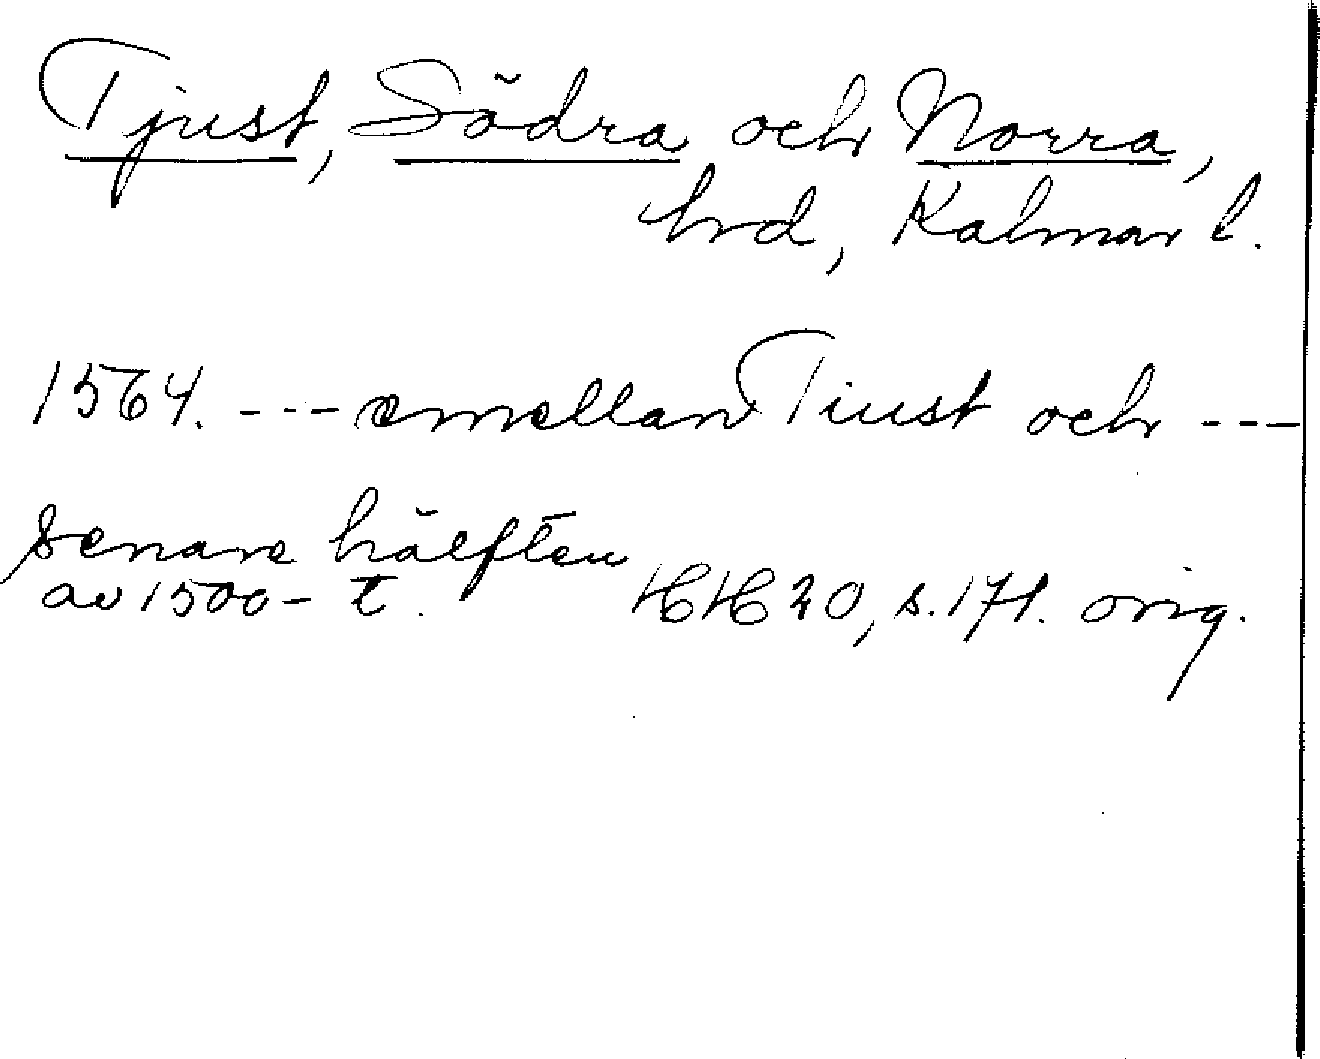 Tjust, Södra och Norra,
hrd, Kalmar l.
1564. --- emellan Tiust och ---
senare hälften
av 1500-t. HH 20, s. 171. orig.